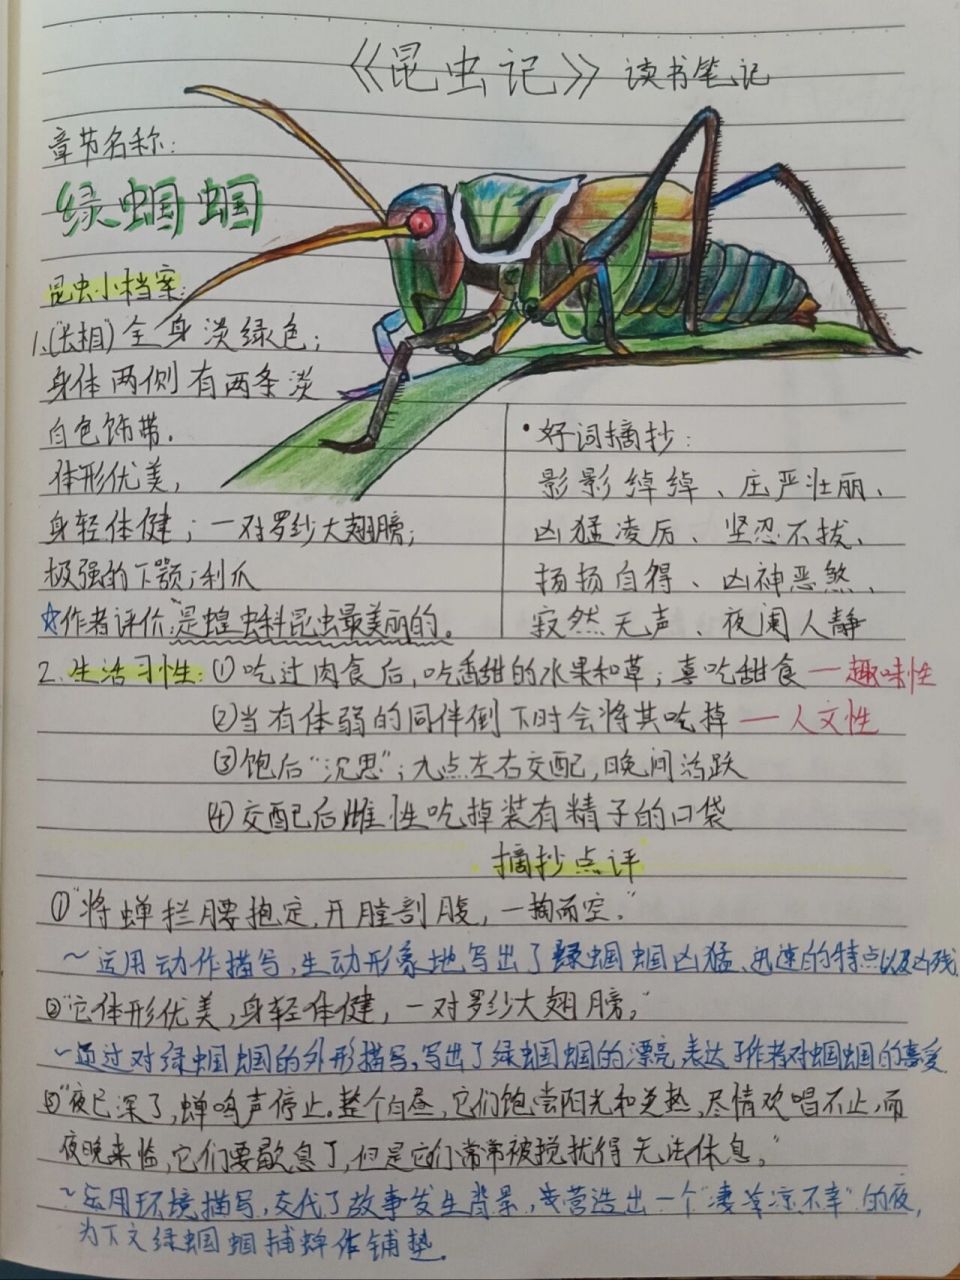 《昆虫记》读书笔记
章节名称:
绿蝈蝈
昆虫小档案:
1.(长相)全身淡绿色;
身体两侧有两条淡
白色饰带.
体形优美,
身轻体健;一对罗纱大翅膀;
极强的下颚;利爪
☆作者评价:是蝗虫科昆虫最美丽的。
·好词摘抄:
影影绰绰、庄严壮丽、
凶猛凌厉、坚忍不拔、
扬扬自得、凶神恶煞、
寂然无声、夜阑人静
2.生活习性:①吃过肉食后,吃香甜的水果和草;喜吃甜食—趣味性
②当有体弱的同伴倒下时会将其吃掉—人文性
③饱后"沉思";九点左右交配,晚间活跃
④交配后雌性吃掉装有精子的口袋
摘抄点评
①"将蝉拦腰抱定,开膛剖腹,一掏而空."
~运用动作描写,生动形象地写出了绿蝈蝈凶猛、迅速的特点以及凶残.
②"它体形优美,身轻体健,一对罗纱大翅膀,"
~通过对绿蝈蝈的外形描写,写出了绿蝈蝈的漂亮,表达了作者对蝈蝈的喜爱.
③"夜已深了,蝉鸣声停止.整个白昼,它们饱尝阳光和炎热,尽情欢唱不止,而
夜晚来临,它们要歇息了,但是它们常常被搅扰得无法休息,"
~运用环境描写,交代了故事发生背景,营造出一个"凄凉不幸"的夜,
为下文绿蝈蝈捕蝉作铺垫.